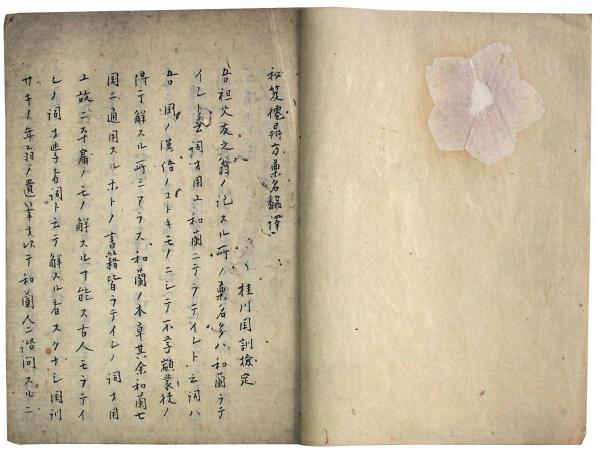 秘笈傀儡方藥名飜譯
桂川国訓撿定
吾祖父友之翁ノ記スル所ノ藥名多ハ和蘭ラテ
イント云詞ヲ用ユ和蘭ニテラテイレト云詞ハ
吾国ノ漢語ノコトキモノニシテ不学顓蒙技ノ
得テ解スル所ニアラス和蘭ノ本草其余和蘭七
国ニ通用スルホトノ書籍皆ラテイレノ詞ヲ用
ユ故ニ本篇ノモノ解スルヿ能ス古人モラテイ
レノ詞ヲ学者詞ト云テ解スル者スクナシ国訓
サキノ年翁ノ遺筆ヲ以テ和蘭人ニ諮問スルニ